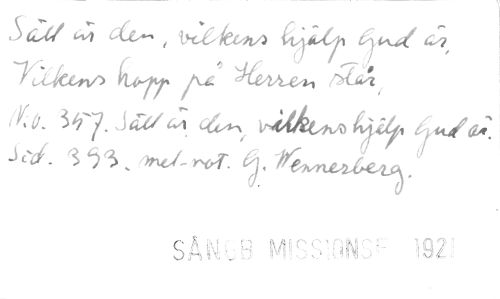 Säll är den, vilkens hjälp Gud är,
Vilkens hopp på Herren står,
N:o. 357. Säll är den, vilkens hjälp Gud är.
Sid. 393. mel-not. G. Wennerberg.
SÅNGB MISSIONSF 1921